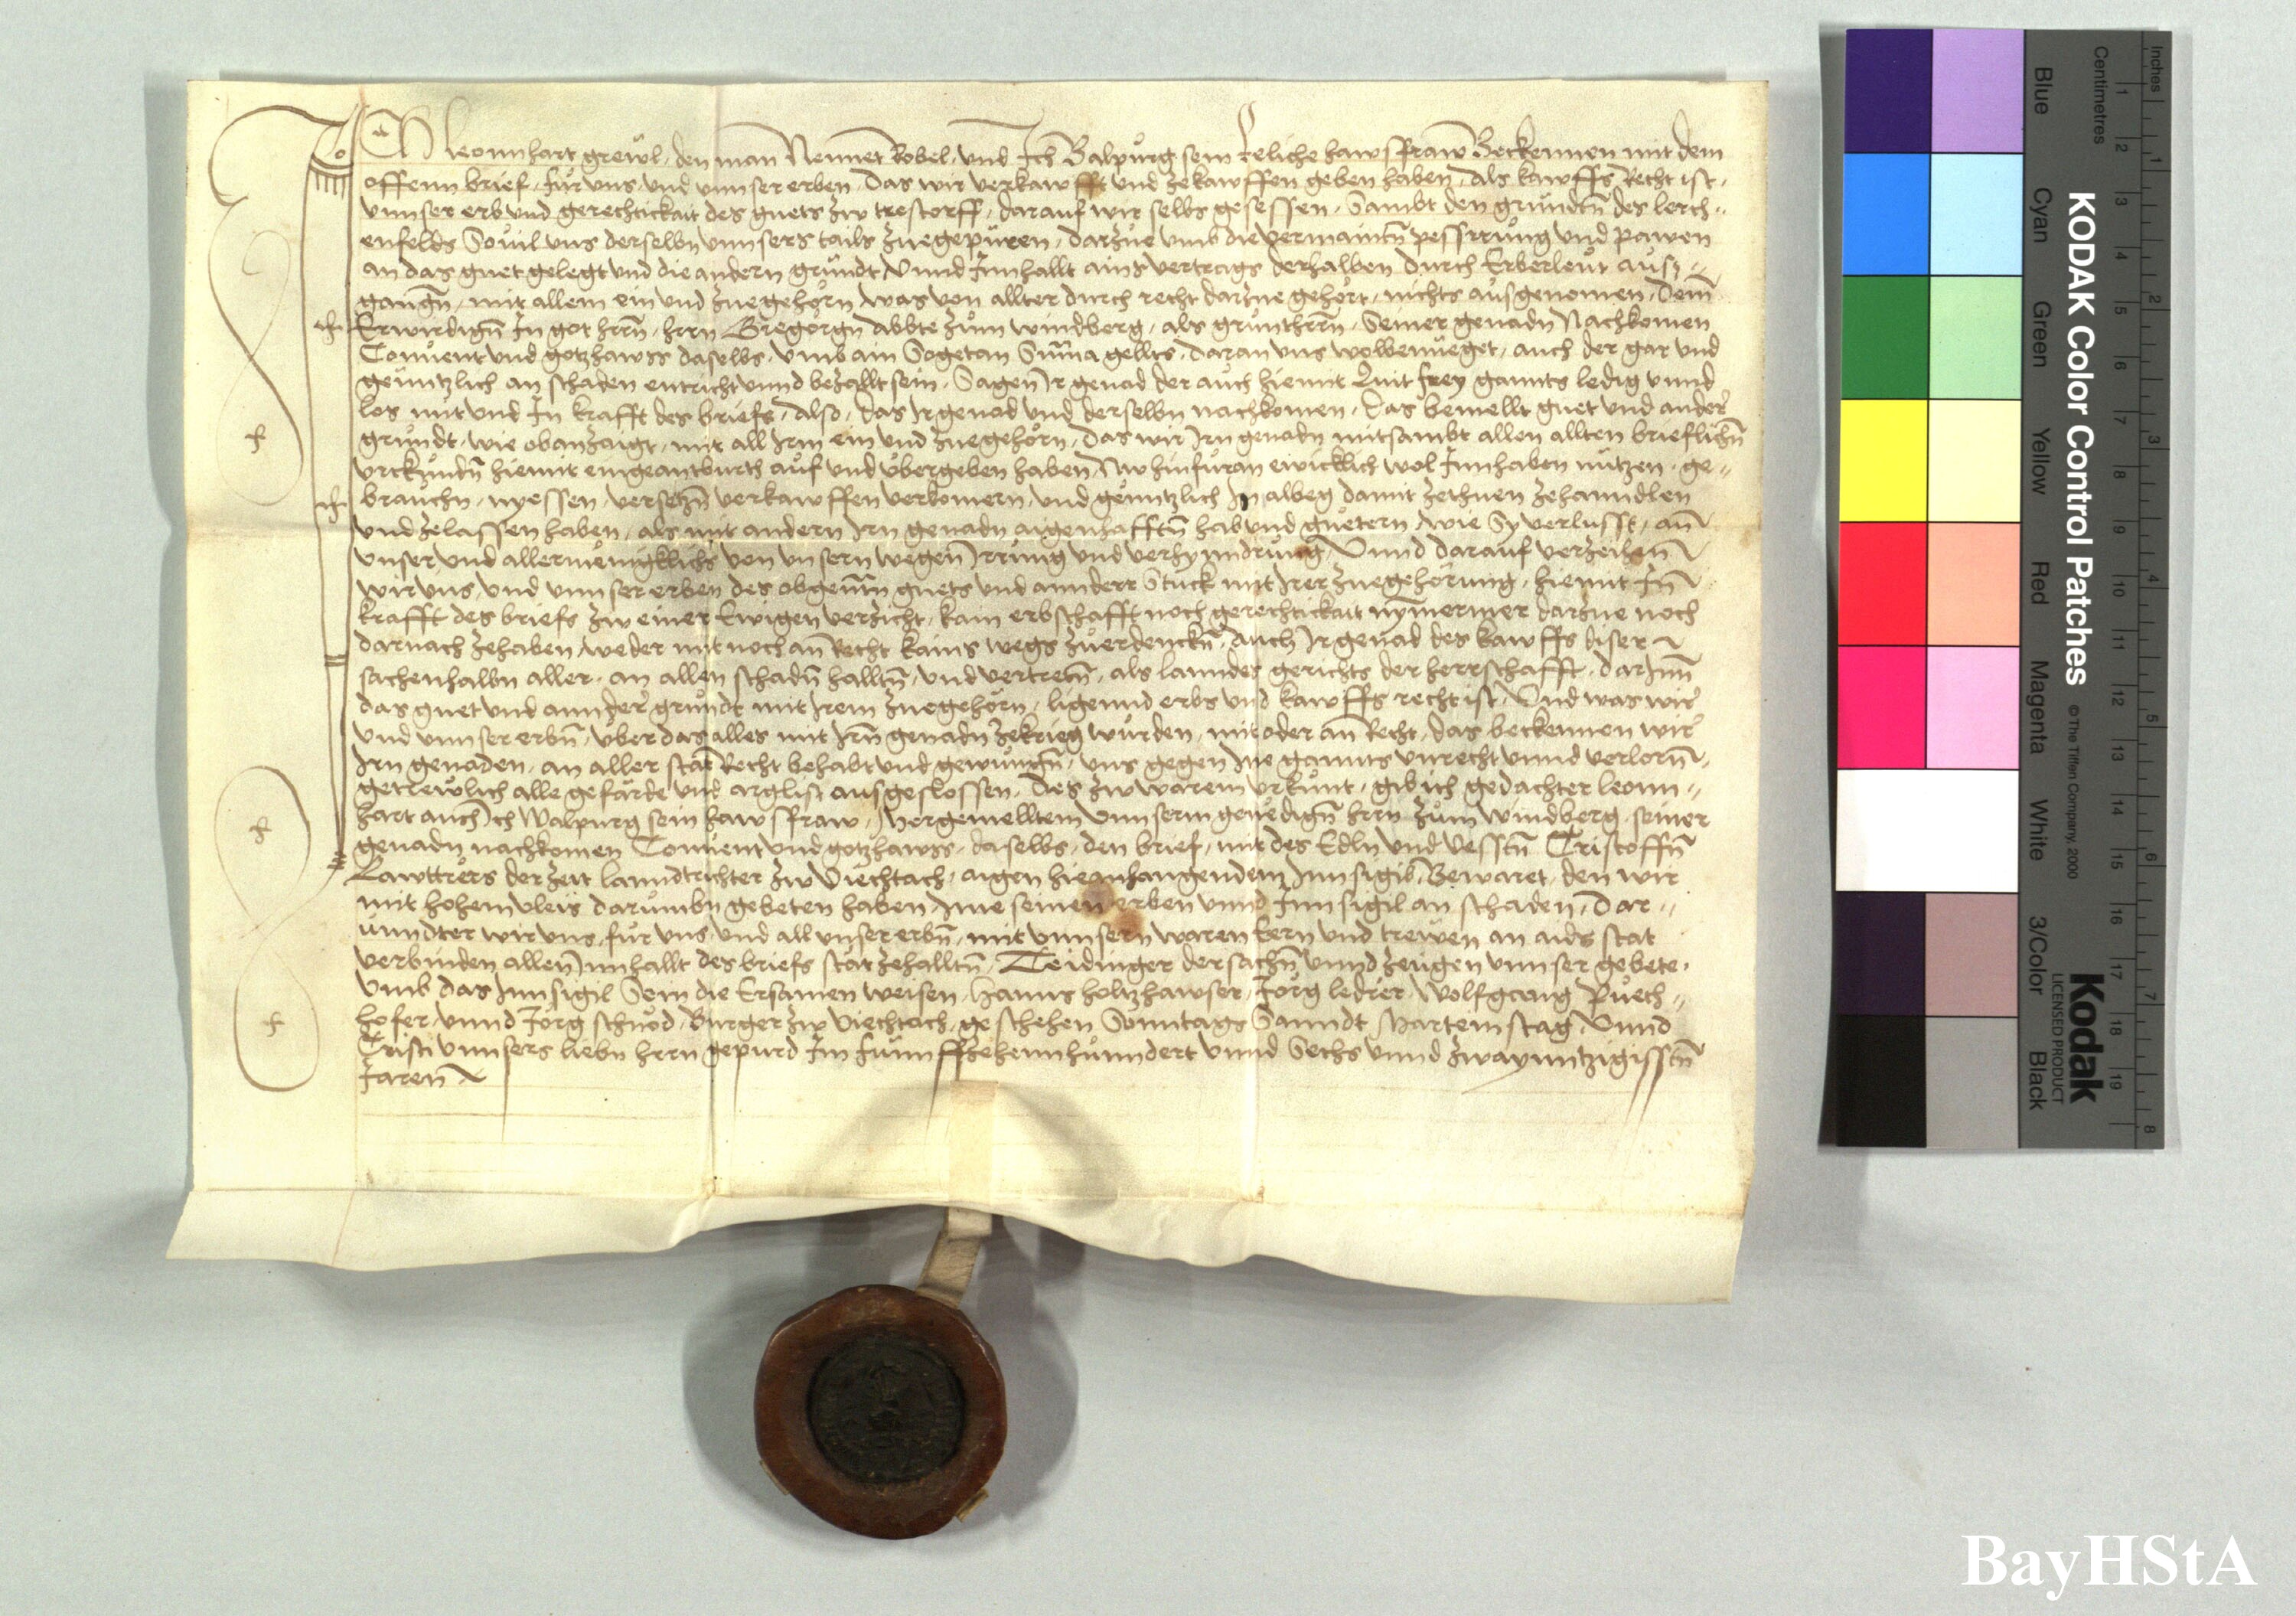 Ich leonnhart grewl, den man Nennet kobel, und Ich Balpurg sein Eeliche hawsfraw Beckennen mit dem
offenn brief, fur uns und unnser erben, das wir verkawfft und zekawffen geben haben, als kawffs Recht ist,
unnser erb und gerechtickait des guets zw trestorff, darauf wir selbs gesessen, Sambt den grundtn des lerch„
enfelds Souil uns derselbn unnsers tails zuegepüren, darzue umb die vermaintn pesserung und pawen
an das guet gelegt und die andern grundt Unnd Innhallt ains vertrags derhalben durch Erberleut ausz„
gangn, mit allem ein und zuegehorn was von allter durch recht darzue gehort, nichts ausgenomen, dem
Erwirdign In got hrrn, hrrn Gregorgn Abbte zum windberg, als gruntherrn, Seiner genadn Nachkomen
Conuent und gotzhawss daselbs, umb ain Sogetan Suma gellts, daran uns wolbenueget, auch der gar und
genntzlich an schaden entricht unnd bezallt sein, Sagen Ir genad der auch hiemit Quit frey gannts ledig unnd
los mit und In krafft des briefs, also, das Ir genad und derselbn nachkomen, das bemellt guet und ander
grundt, wie oban zaigt, mit all Irm ein und zuegehorn, das wir Irn genadn mitsambt allen allten brieflichn
urckundn hiemit eingeantburth auf und ubergeben haben, Nw hinfuran ewicklich wol Innhaben nutzen, ge„
brauchn, nyessen, versetzn verkawffen verkomern, und genntzlich In albeg damit zethuen zehanndlen
und zelassen haben, als mit andern Irn genadn aigenhafftn hab und guetern, wie Sy verlusst, an
unser und allermenigklichs von unsern wegen Irrung und verhynndrung, Unnd darauf verzeihen
wir uns, und unnser erben des obgenntn guets und annderr Stuck mit Irer zuegehorung, hiemit In
krafft des briefs zw einer Ewigen verzicht, kain erbschafft noch gerechtickait nymermer darzue noch
darnach zehaben, weder mit noch an Recht kains wegs zuerdenckn, auch Ir genad des kawffs diser
sachenhalbn aller, an allen schadn halltn, und vertretn, als lanndes gerichts der herrschafft, darInn
das guet und annder grundt mit Irem zuegehorn, ligennd erbs und kawffs recht ist, Und was wir
und unnser erbn, uber das alles mit Irn genadn zekrieg wurden, mit oder an Recht, das beckennen wir
Irn genaden, an aller stat Recht behabt und gewungn, uns gegen Ine gannts unrecht unnd verlorn,
getrewlich alle gefärde und arglist ausgeslossen, des zw warem urkunt, gib ich gedachter leonn„
hart auch Ich Walpurg sein hawsfraw, Hergemelltem unnserm genedign hrrn zum windberg, seiner
genadn nachkomen Conuent und gotzhawss, daselbs, den brief, mit des Edln und Vesstn Cristoffn
Lawttrers der zeit lanndtrichter zw Viechtach, aigen hieanhangendem Innsigil, Bewaret, den wir
mit hohem vleis darumbn gebeten haben, Ime seinen erben unnd Innsigil an schaden, Dar„
unndter wir uns, fur uns und all unser erbn, mit unnsern waren Eern und trewen an aids stat
verbinden allen Innhallt des briefs stät zehalltn, Teidinger der sachn unnd zeugen unnser gebete,
umb das Innsigil Sein die Ersamen weisen, Hanns holtzhawser, Jorg ledrer, Wolfgang Puech„
hofer, unnd Jorg schnod, Burger zw Viechtach, geschehen Sonntags Sanndt Marteinstag, Unnd
Cristi unnsers liebn hrrn gepurd Im funnffzehennhunndert unnd Sechs unnd zwaynntzigisstn
Jaren
Inches
Centimetres
Blue
Cyan
Green
Yellow
Red
Magenta
White
3/Color
Black
KODAK Color Control Patches
© The Tiffen Company, 2000
LICENSED PRODUCT
Kodak
BayHStA